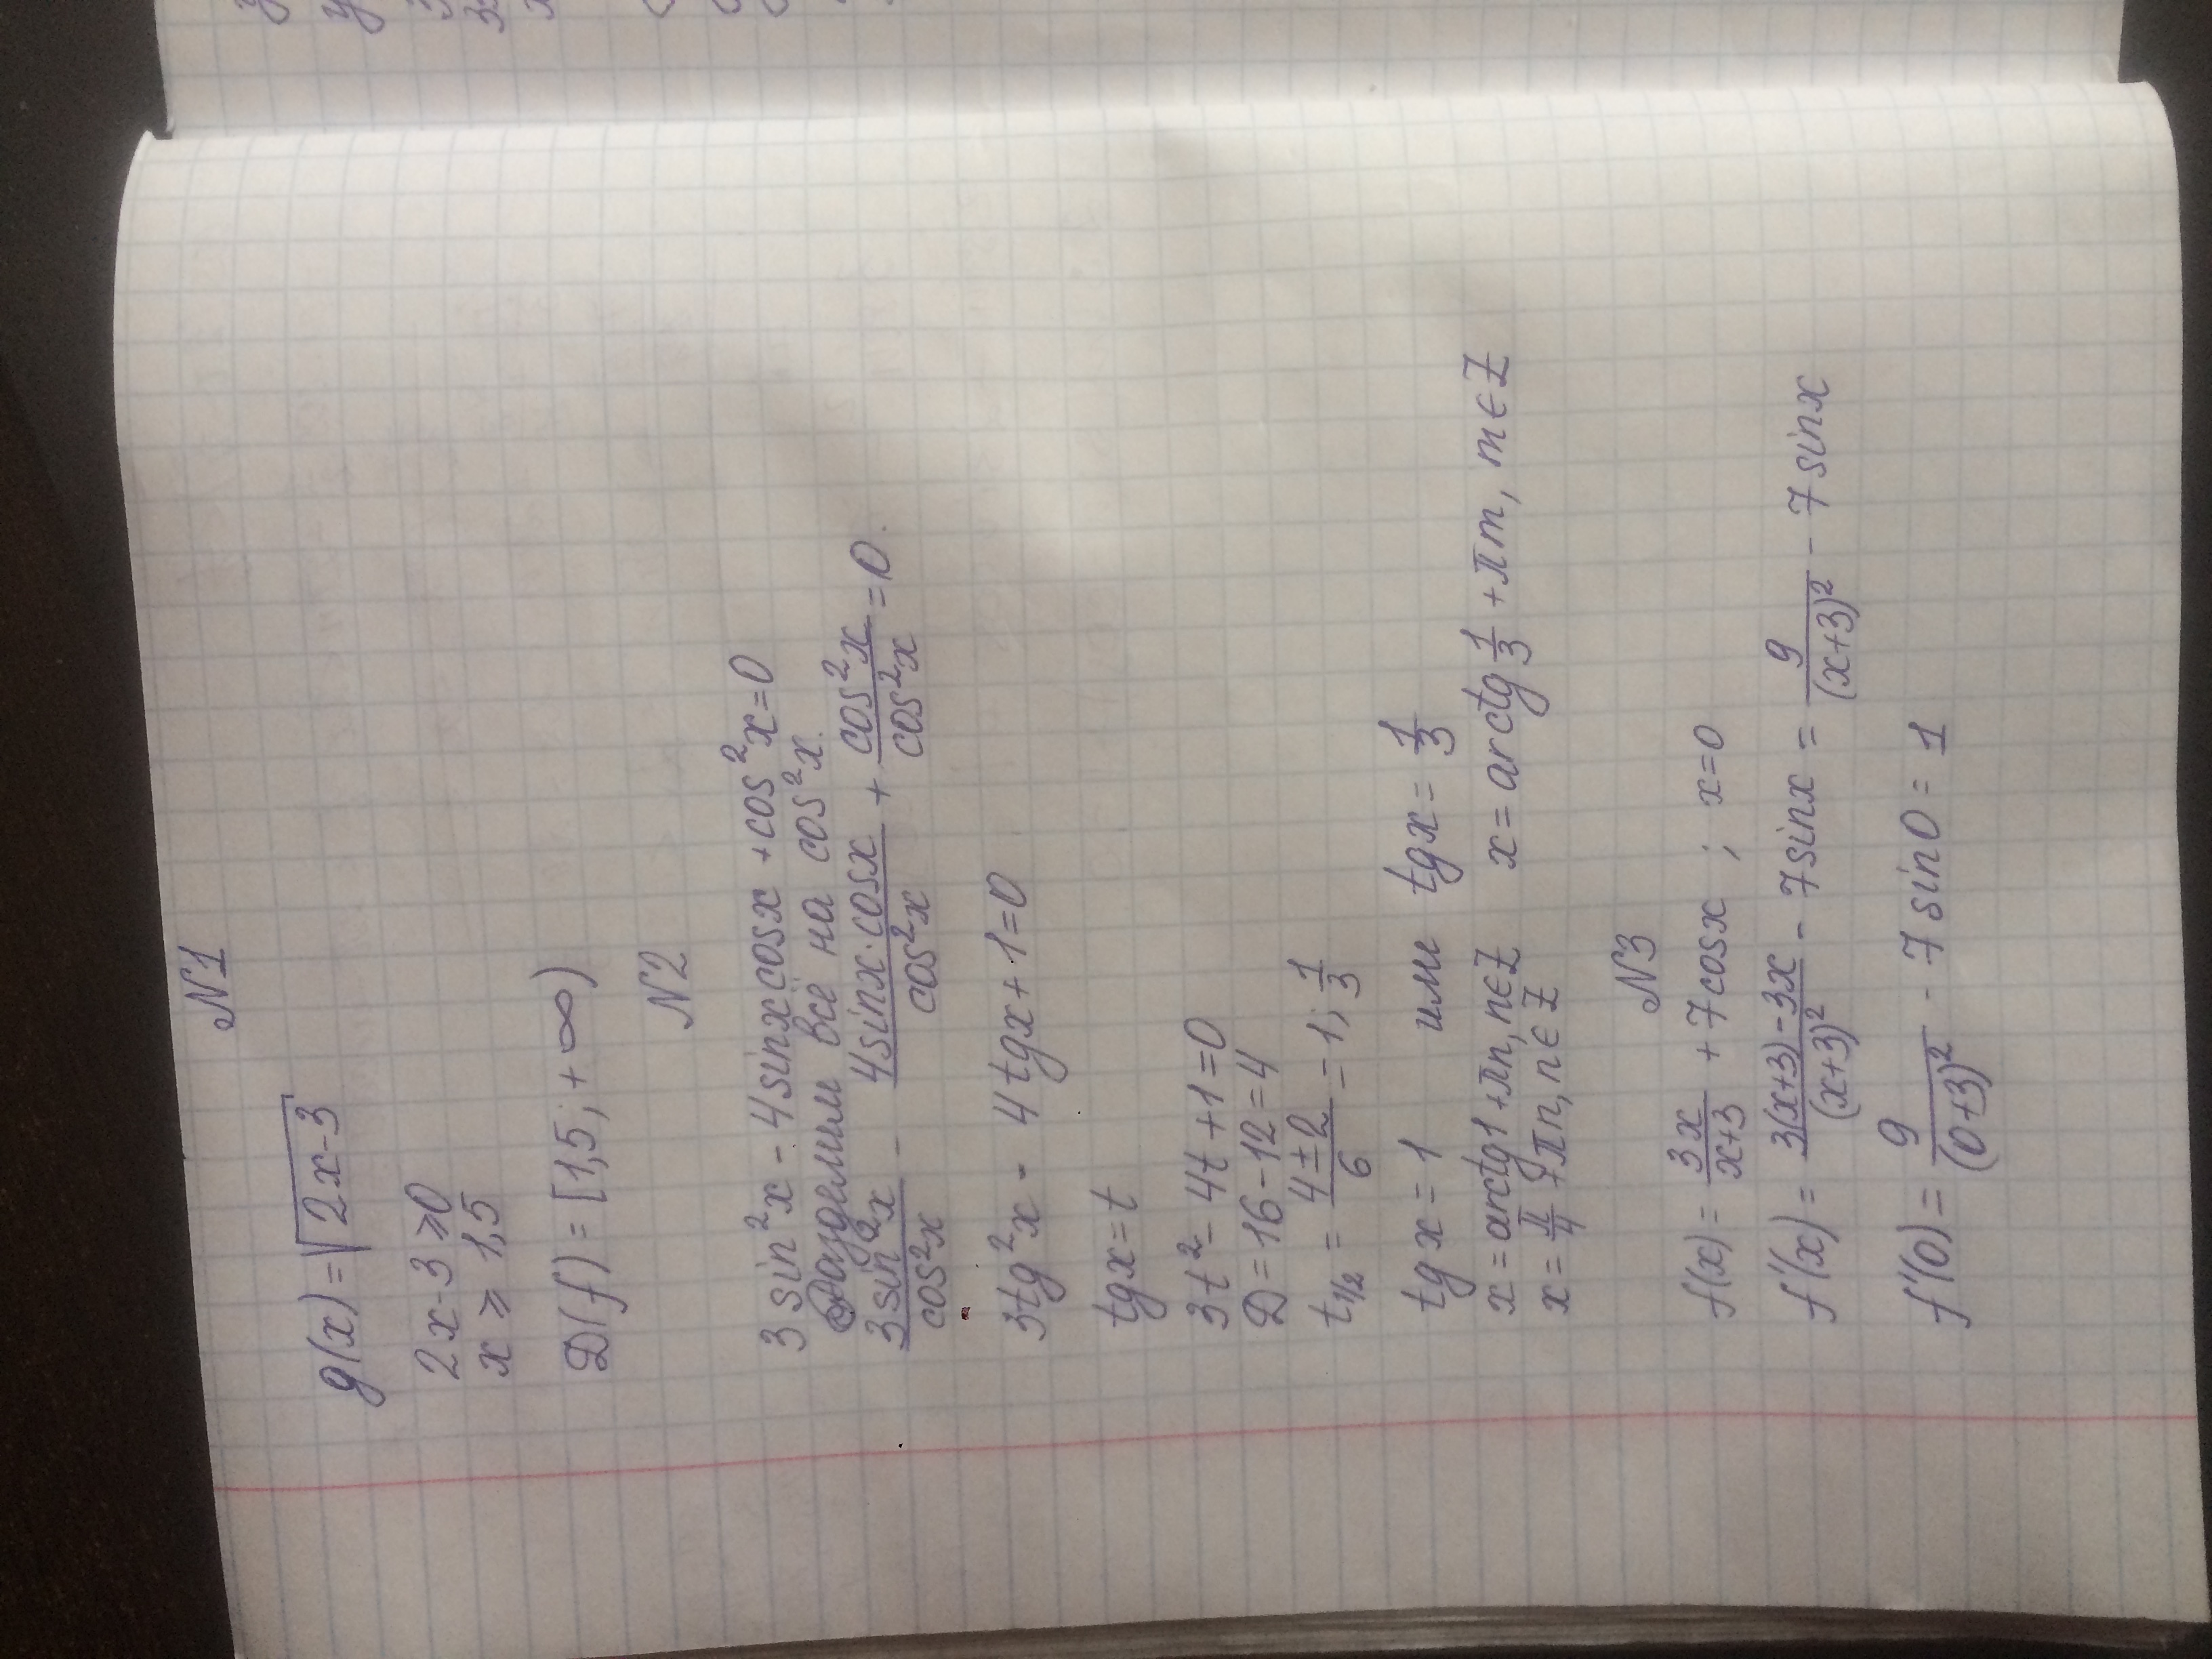 N1
g(x) = √2x-3
2x-3 ≥ 0
x ≥ 1,5
D(f) = [1,5 ; +∞)
N2
3 sin²x - 4 sin x cos x + cos²x = 0
Разделим всё на cos²x.
3 sin²x / cos²x - 4 sin x · cos x / cos²x + cos²x / cos²x = 0.
3tg²x - 4 tg x + 1 = 0
tg x = t
3t² - 4t + 1 = 0
D = 16 - 12 = 4
t1/2 = 4 ± 2 / 6 = 1; 1/3
tg x = 1 или tg x = 1/3
x = arctg 1 + πn, n ∈ Z x = arctg 1/3 + πm, m ∈ Z
x = π/4 + πn, n ∈ Z
N3
f(x) = 3x / x+3 + 7 cos x ; x = 0
f'(x) = 3(x+3) - 3x / (x+3)² - 7 sin x = 9 / (x+3)² - 7 sin x
f'(0) = 9 / (0+3)² - 7 sin 0 = 1